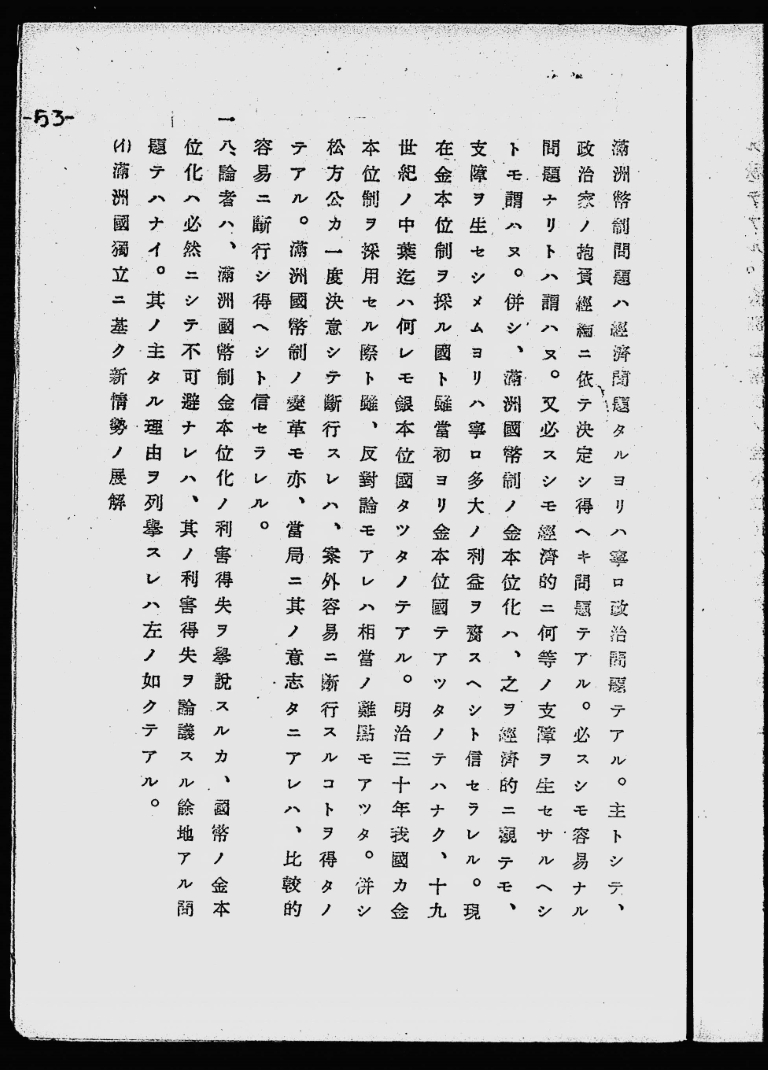 滿洲幣制問題ハ經濟問題タルヨリハ寧ロ政治問題テアル。主トシテ、
政治家ノ抱負經綸ニ依テ決定シ得ヘキ問題テアル。必スシモ容易ナル
問題ナリトハ謂ハヌ。又必スシモ經濟的ニ何等ノ支障ヲ生セサルヘシ
トモ謂ハヌ。併シ、滿洲國幣制ノ金本位化ハ、之ヲ經濟的ニ觀テモ、
支障ヲ生セシメムヨリハ寧ロ多大ノ利益ヲ齎スヘシト信セラレル。現
在金本位制ヲ採ル國ト雖當初ヨリ金本位國テアツタノテハナク、十九
世紀ノ中葉迄ハ何レモ銀本位國タツタノテアル。明治三十年我國カ金
本位制ヲ採用セル際ト雖、反對論モアレハ相當ノ難點モアツタ。併シ
松方公カ一度決意シテ斷行スレハ、案外容易ニ斷行スルコトヲ得タノ
テアル。滿洲國幣制ノ變革モ亦、當局ニ其ノ意志タニアレハ、比較的
容易ニ斷行シ得ヘシト信セラレル。
一八、論者ハ、滿洲國幣制金本位化ノ利害得失ヲ擧說スルカ、國幣ノ金本
位化ハ必然ニシテ不可避ナレハ、其ノ利害得失ヲ論議スル餘地アル問
題テハナイ。其ノ主タル理由ヲ列擧スレハ左ノ如クテアル。
(イ)滿洲國獨立ニ基ク新情勢ノ展解
-53-